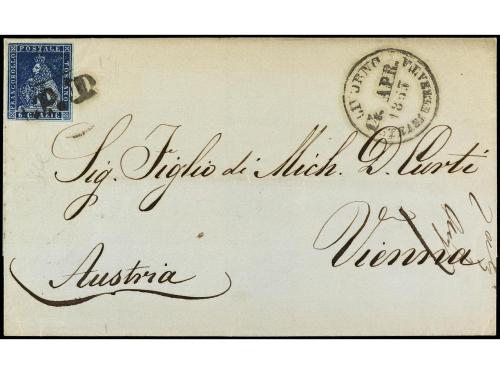 POSTALE
FRANCOBOLLO
TOSCANO
6 CRAZIE
P.D
LIVORNO
APR.
1853
Sig. Figlio di Mich. D. Curti
Vienna
Austria